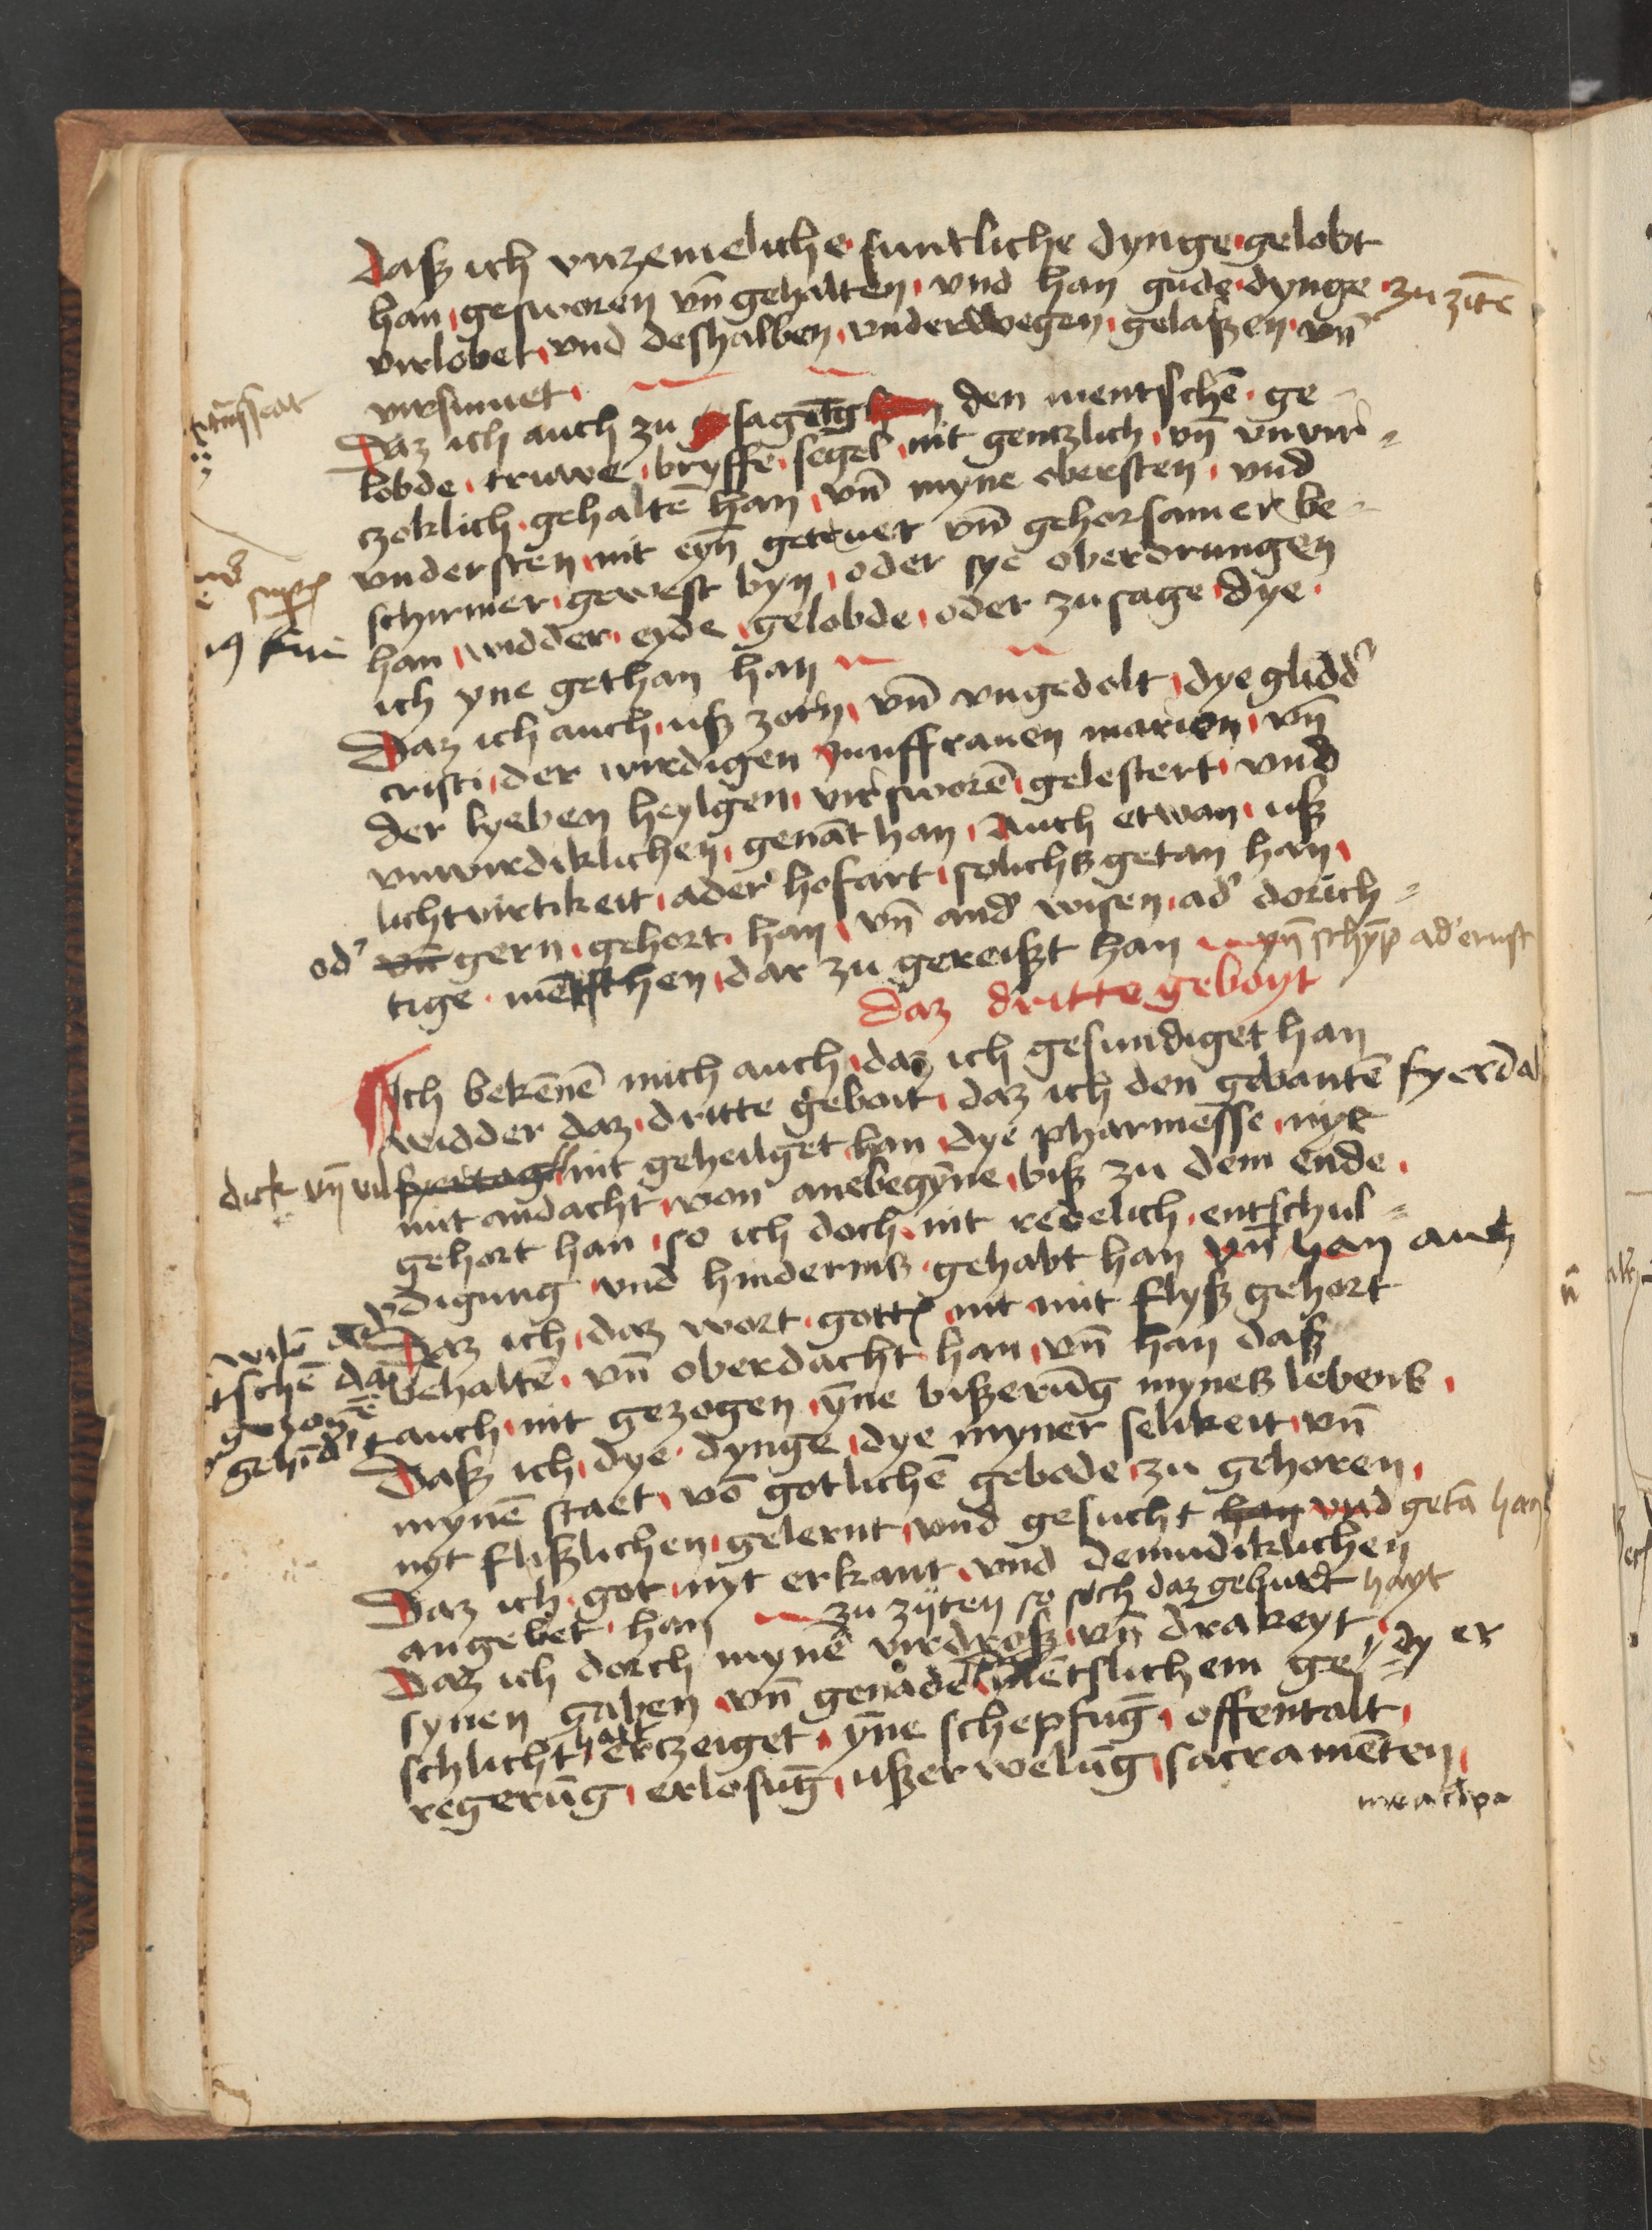 daß ich vnzemeliche suntliche dynge gelobt
han gesworen vn̄ gehalten vnd han gude dynge zu zitē
virlobet vnd deshalben vnderwegen gelaßen vn̄
virsumet
Daz ich auch zu sagūg den mentschē ge
lobde truwe bryffe segel nit gentzlich vn̄ vnvir
czoklich gehaltē han vn̄ myne obersten vnd
vndersten nit eyn̄ getruer vn̄ gehorsamer be
schirmer gewest byn oder sye oberdrungen
han widder eyde gelobde oder zusage dye
ich yne gethan han
Daz ich auch uß zorn vn̄ vngedolt dye glidd'
cristi der wirdigen iunffrauen marien vn̄
der lyeben heylgen virsworē gelestert vnd
vnwirdiklichen genāt han Auch etwan uß
lichtvirtikeit ader hofart solichs getan han
od' vn̄ gern gehort han vn̄ and' wisen ad' dorich
tige mētschen dar zu gereißt han yn̄ schȳp ad' ernst
Daz dritte geboyt
Ich bekēnē mich auch daz ich gesundiget han
widder daz dritte geboit daz ich den gebantē fyerda
dick vn̄ vil fyertag nit geheilget han dye pharmesse nyt
mit andacht von anebegȳne biß zu dem ende
gehort han so ich doch nit redelich entschul
digung vnd hinderniß gehabt han vn̄ han auch
Daz ich daz wort gottes nit mit flyß gehort
behaltē vn̄ oberdacht han vn̄ han daß
auch nit gezogen yn̄e bißerūg myneß lebens
gehīd't
Daß ich dye dynge dye myner selikeit vn̄
mynē staet vō gotlichē gebode zu gehoren
nyt flißlichen gelernt vnd gesucht han vnd getā han
Daz ich got nyt erkant vnd demudiklichen
angebet han zu zyten so sich daz geburt hayt
Daz ich dorch mynē virdroß vn̄ drakeyt dy er
synen gaben vn̄ genade mētslichem ge
schlicht hatt erczeiget yn̄e schepfūg offentalt
regerūg erlosūg ußerwelūg sacramēten
mea clpa